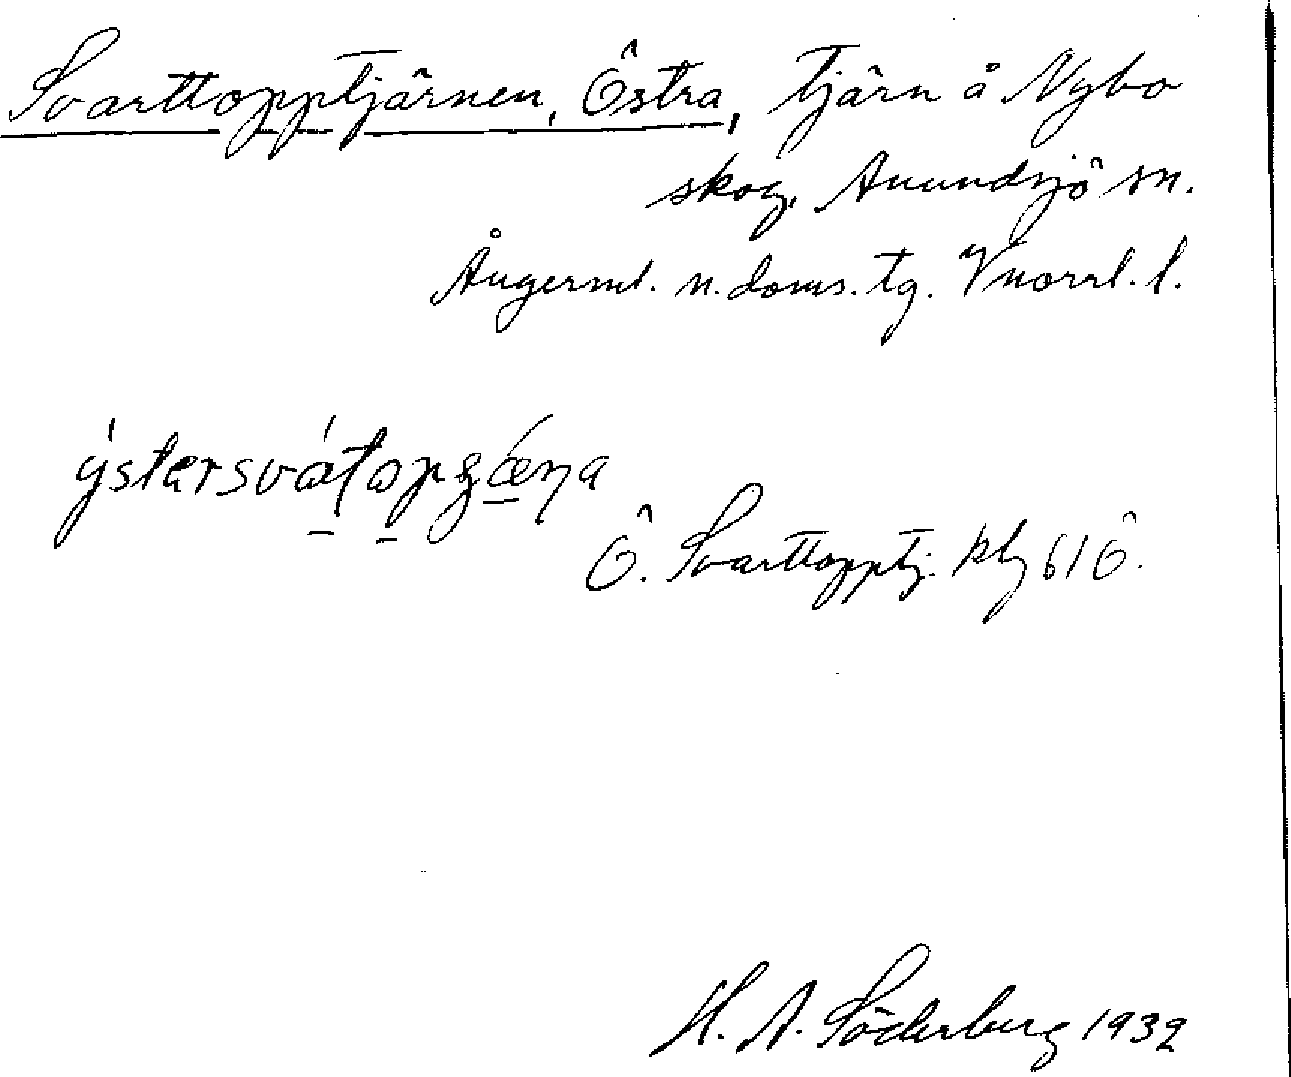 Svarttopptjärnen, Östra, tjärn å Nybo
skog, Anundsjö sn.
Ångerml. n. doms. tg. Vnorrl. l.
ýstersvátopʒǽŋa
Ö. Svarttopptj. kbl 61 Ö.
H. A. Söderberg 1932